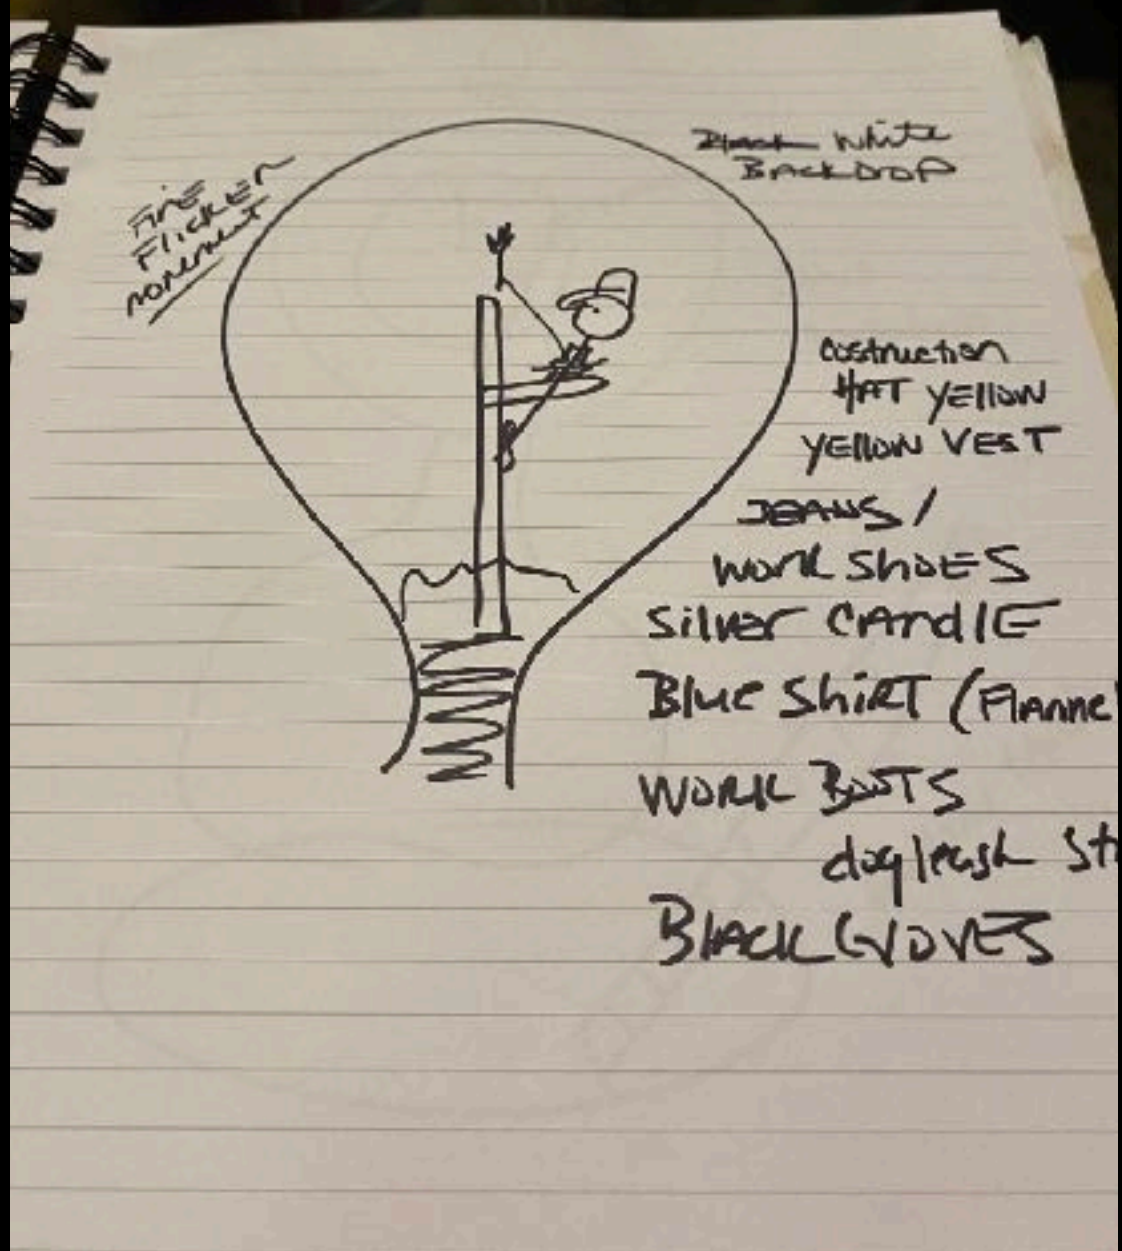 FirE
FlickEr
movement
Black White
BACKDROP
Costruction
HAT YEllow
YEllow VEST
JEANS/
Work ShoES
Silver CAndlE
Blue ShiRT (Flannel
WORK BOOTS
dog leash St
BlACK GloVES